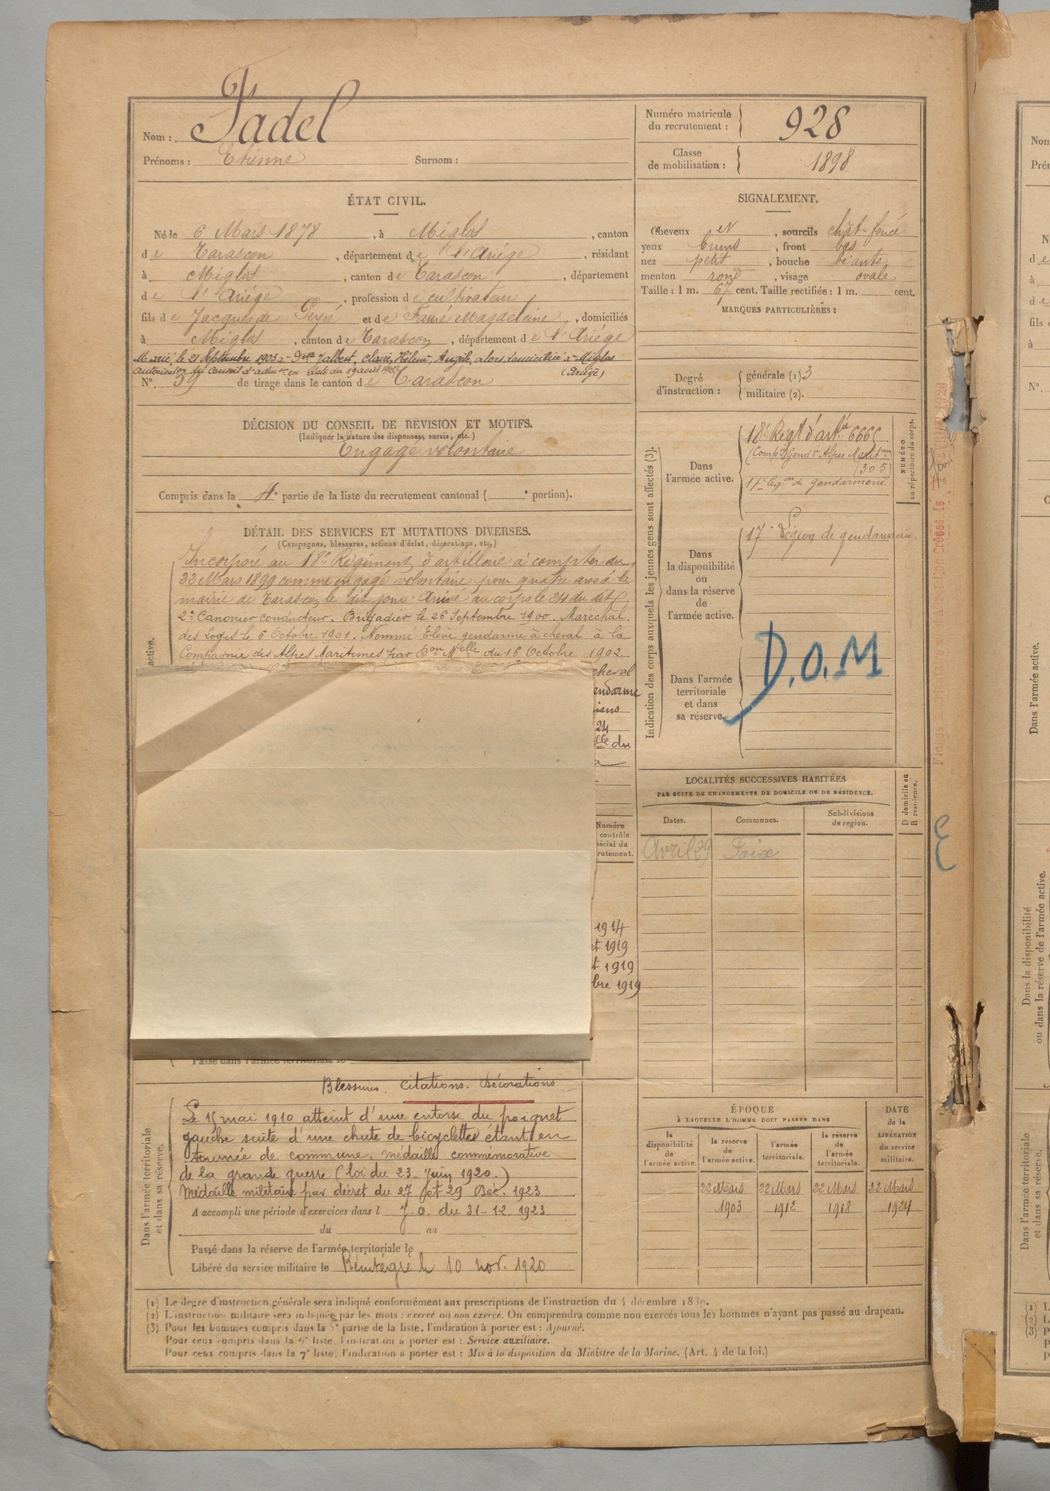 Nom : Fadel
Prénoms : Etienne Surnom :
Numéro matricule du recrutement : 928
Classe de mobilisation : 1898
ÉTAT CIVIL.
Né le 6 Mars 1878, à Miglos, canton
de Tarascon, département de l'Ariége, résidant
à Miglos, canton de Tarascon, département
de l'Ariége, profession de cultivateur
fils de Jacques de Peyré et de Faure Magdelaine, domiciliés
à Miglos, canton de Tarascon, département de l'Ariége
Marié le 21 Septembre 1903 à Dlle Jalbert, Claire, Hélène, Angèle, alors domiciliée à Miglos
(Ariège)
N° 59 de tirage dans le canton de Tarascon
SIGNALEMENT.
Cheveux et, sourcils chât-foncé
yeux bruns, front bas
nez petit, bouche béante
menton rond, visage ovale
Taille : 1 m. 67 cent. Taille rectifiée : 1 m. cent.
MARQUES PARTICULIÈRES :
Degré d'instruction : générale (1) 3
militaire (2).
DÉCISION DU CONSEIL DE REVISION ET MOTIFS.
(Indiquer la nature des dispenses, sursis, etc.)
Engagé volontaire
Compris dans la 4e partie de la liste du recrutement cantonal ( e portion).
DÉTAIL DES SERVICES ET MUTATIONS DIVERSES.
(Campagnes, blessures, actions d'éclat, décorations, etc.)
Incorporé au 18e Régiment d'artillerie à compter du
22 Mars 1899 comme engagé volontaire pour quatre ans à la
mairie de Tarascon le dit jour. Arrivé au corps le 24 du dit
2e Canonier conducteur. Brigadier le 26 Septembre 1900. Maréchal
des Logis le 6 Octobre 1901. Nommé Elève gendarme à cheval à la
Compagnie des Alpes Maritimes par Don Melle du 16 Octobre 1902
cheval
gendarme
24
du
Numéro
contrôle
spécial du
recrutement.
1914
1919
1919
bre 1919
active.
Indication des corps auxquels les jeunes gens sont affectés (3).
Dans l'armée active.
18e Regt d'artie 6665
(Compie gend. Alpes Maritmes
(305)
17e légion de gendarmerie
NUMÉRO
au répertoire du corps.
Dans la disponibilité ou dans la réserve de l'armée active.
17e Légion de gendarmerie.
Dans l'armée territoriale et dans sa réserve.
D.O.M
LOCALITÉS SUCCESSIVES HABITÉES
PAR SUITE DE CHANGEMENTS DE DOMICILE OU DE RÉSIDENCE.
Dates. Communes. Subdivisions de région.
D domicile ou R résidence.
Avril 29 Foix
Passé dans l'armée territoriale le
Blessures. Citations. Décorations
Dans l'armée territoriale et dans sa réserve.
Le 15 mai 1910 atteint d'une entorse du poignet
gauche suite d'une chute de bicyclette étant en
tournée de commune. médaille commémorative
de la grande guerre (loi du 23 Juin 1920.)
Médaille militaire par décret du 27 et 29 Dec. 1923
A accompli une période d'exercices dans l J.O. du 31-12 1923
du au
Passé dans la réserve de l'armée territoriale le
Libéré du service militaire le Réintégré le 10 nov. 1920
ÉPOQUE
À LAQUELLE L'HOMME DOIT PASSER DANS
DATE de la LIBÉRATION du service militaire.
la disponibilité de l'armée active. la réserve de l'armée active. l'armée territoriale. la réserve de l'armée territoriale.
22 Mars 22 Mars 22 Mars 22 Mars
1903 1912 1918 1924
(1) Le degré d'instruction générale sera indiqué conformément aux prescriptions de l'instruction du 4 décembre 1889.
(2) L'instruction militaire sera indiquée par les mots : exercé ou non exercé. On comprendra comme non exercés tous les hommes n'ayant pas passé au drapeau.
(3) Pour les hommes compris dans la 5e partie de la liste, l'indication à porter est : Ajourné.
Pour ceux compris dans la 6e liste, l'indication à porter est : Service auxiliaire.
Pour ceux compris dans la 7e liste, l'indication à porter est : Mis à la disposition du Ministre de la Marine. (Art. 4 de la loi.)